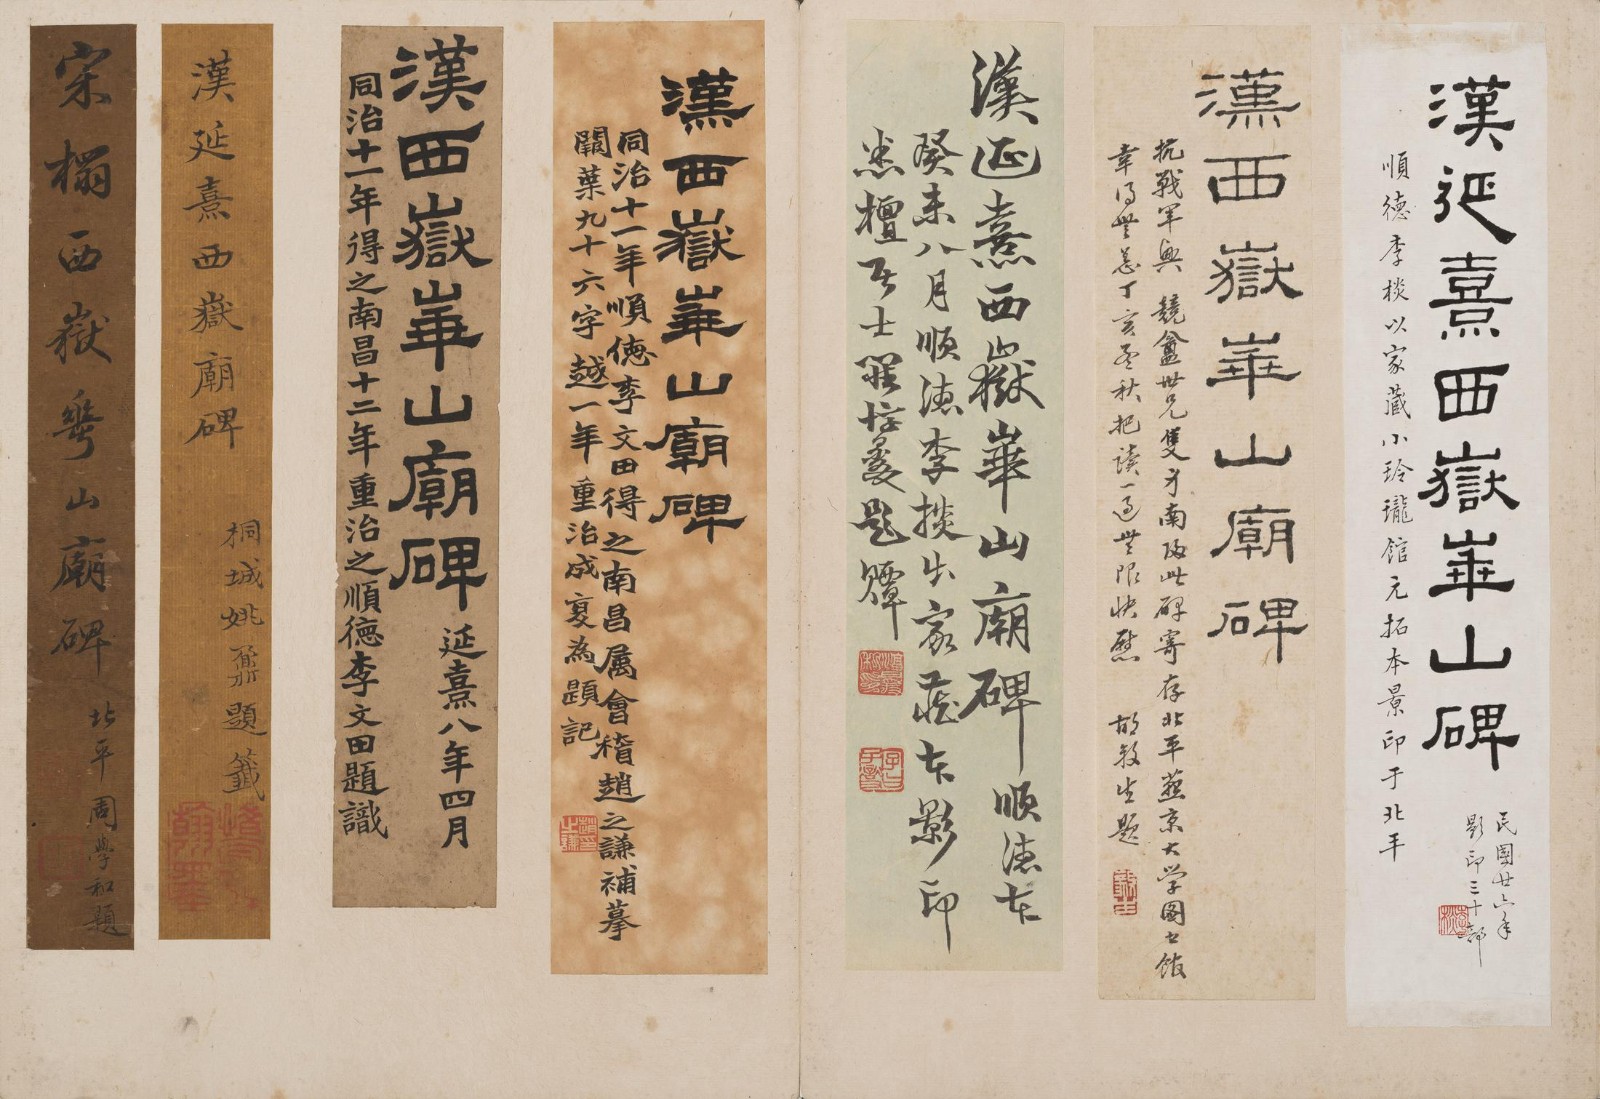 漢延熹西嶽華山碑
順德李棪以家藏小玲瓏館元拓本景印于北平
民國廿六年
影印三十部
漢西嶽華山廟碑
抗戰軍興 競盦世兄隻身南隊此碑寄存北平燕京大學圖書館
幸得無恙丁亥孟秋把讀一過無限快慰 敩生題
漢延熹西嶽華山廟碑 順德本
癸未八月順德李棪出家藏本影印
悉檀居士 題 籤
漢西嶽華山廟碑
同治十一年順德李文田得之南昌屬會稽趙之謙補摹
闕葉九十六字越一年重治成夏為題記
漢西嶽華山廟碑 延熹八年四月
同治十一年得之南昌十二年重治之順德李文田題識
漢延熹西嶽廟碑
桐城姚鼐題籤
宋榻西嶽華山廟碑
北平周學和題